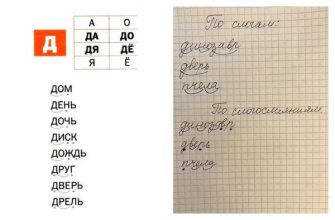 А О
Д ДА ДО
ДЯ ДЁ
Я Ё
ДОМ
ДЕНЬ
ДОЧЬ
ДИСК
ДОЖДЬ
ДРУГ
ДВЕРЬ
ДРЕЛЬ
По слогам:
динозавр
дверь
пчела
По слогослияниям
динозавр
дверь
пчела